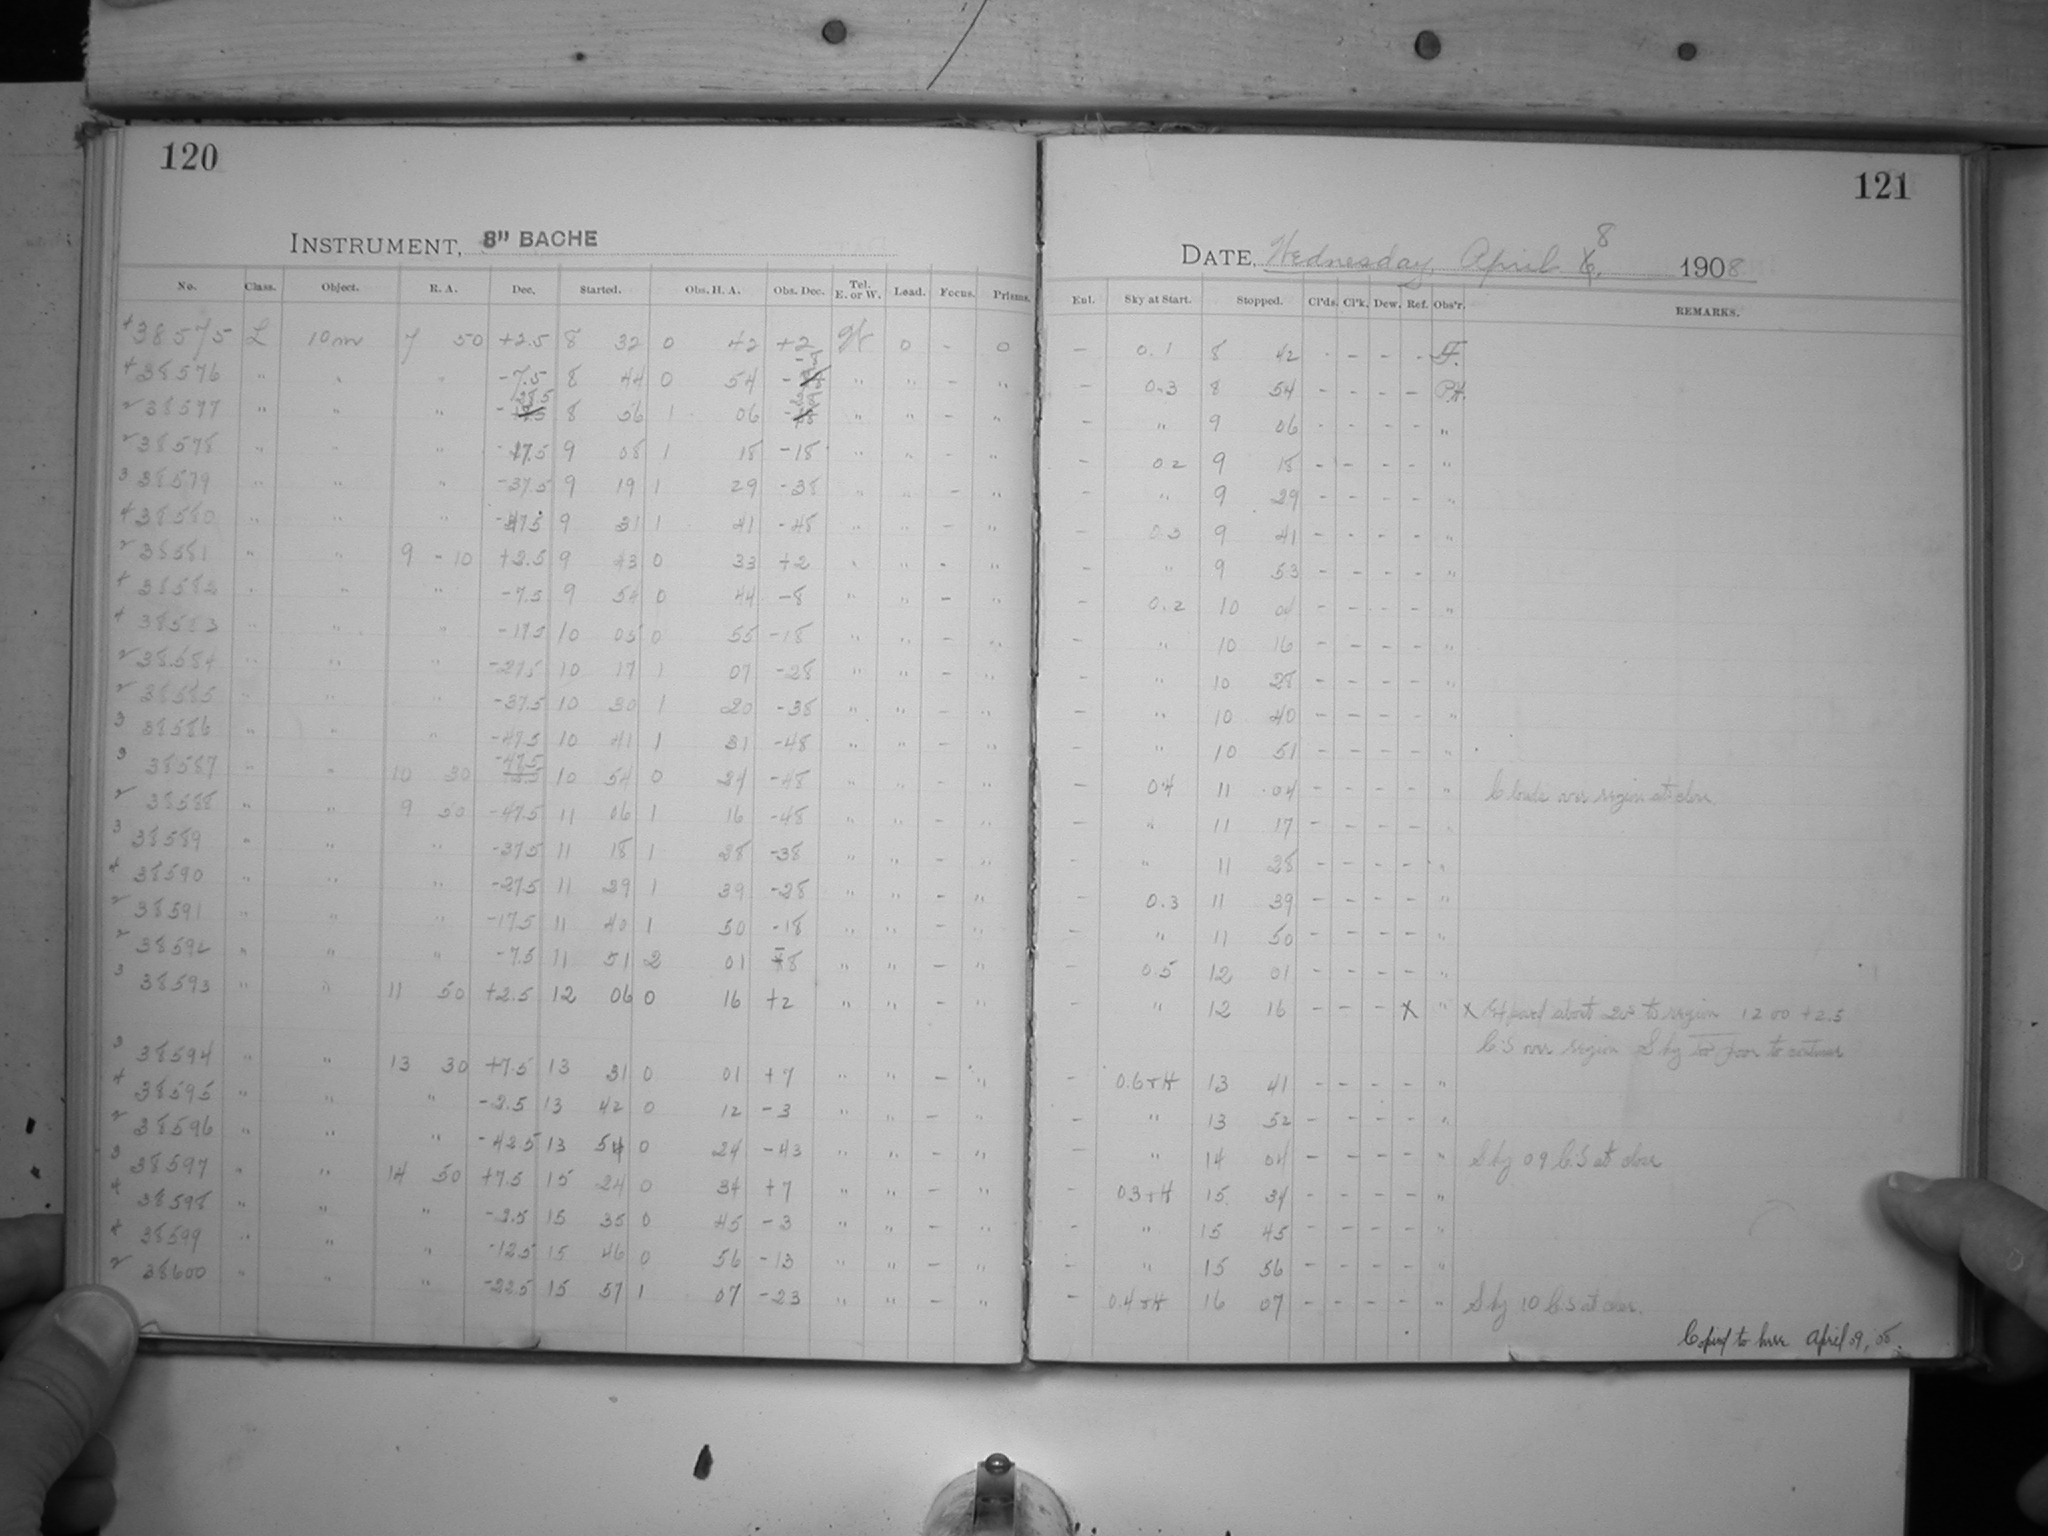 120
INSTRUMENT, 8" BACHE
No. Class. Object. R. A. Dec. Started. Obs. H. A. Obs. Dec. Tel. E. or W. Load. Focus. Prisms.
4 38575 L 10m 7 50 +2.5 8 32 0 42 +2 W 0 - 0
4 38576 " " " -7.5 8 44 0 54 -8 " " - "
2 38577 " " " 8 56 1 06 " " - "
2 38578 " " " -17.5 9 08 1 18 -18 " " - "
3 38579 " " " -37.5 9 19 1 29 -38 " " - "
4 38580 " " " -47.5 9 31 1 41 -48 " " - "
2 38581 " " 9 - 10 +2.5 9 43 0 33 +2 " " - "
4 38582 " " " -7.5 9 54 0 44 -8 " " - "
4 38583 " " " -17.5 10 05 0 55 -18 " " - "
2 38584 " " " -27.5 10 17 1 07 -28 " " - "
2 38585 " " " -37.5 10 30 1 20 -38 " " - "
3 38586 " " " -47.5 10 41 1 31 -48 " " - "
3 38587 " " 10 30 -47.5 10 54 0 34 -48 " " - "
2 38588 " " 9 50 -47.5 11 06 1 16 -48 " " - "
3 38589 " " " -37.5 11 18 1 28 -38 " " - "
4 38590 " " " -27.5 11 29 1 39 -28 " " - "
2 38591 " " " -17.5 11 40 1 50 -18 " " - "
2 38592 " " " -7.5 11 51 2 01 -8 " " - "
3 38593 " " 11 50 +2.5 12 06 0 16 +2 " " - "
3 38594 " " 13 30 +7.5 13 31 0 01 +7 " " - "
4 38595 " " " -2.5 13 42 0 12 -3 " " - "
2 38596 " " " -42.5 13 54 0 24 -43 " " - "
3 38597 " " 14 50 +7.5 15 24 0 34 +7 " " - "
4 38598 " " " -2.5 15 35 0 45 -3 " " - "
4 38599 " " " -12.5 15 46 0 56 -13 " " - "
2 38600 " " " -22.5 15 57 1 07 -23 " " - "
121
DATE, Wednesday, April 8, 1908
Eul. Sky at Start. Stopped. Cl'ds. Cl'k. Dew. Ref. Obs'r. REMARKS.
- 0.1 8 42 - - - - F.
- 0.3 8 54 - - - - P.H.
- " 9 06 - - - - "
- 0.2 9 18 - - - - "
- " 9 29 - - - - "
- 0.3 9 41 - - - - "
- " 9 53 - - - - "
- 0.2 10 04 - - - - "
- " 10 16 - - - - "
- " 10 28 - - - - "
- " 10 40 - - - - "
- " 10 51 - - - - "
- 0.4 11 04 - - - - " Clouds over region at close.
- " 11 17 - - - - "
- " 11 28 - - - - "
- 0.3 11 39 - - - - "
- " 11 50 - - - - "
- 0.5 12 01 - - - - "
- " 12 16 - - - X " X Exposed about to region 12 00 +2.5
C.S over region Sky too poor to continue
- 0.6+H 13 41 - - - - "
- " 13 52 - - - - "
- " 14 04 - - - - " Sky 0.9 C.S at close
- 0.3+H 15 34 - - - - "
- " 15 45 - - - - "
- " 15 56 - - - - "
- 0.4+H 16 07 - - - - " Sky 10 C.S at close.
Copied to here April 09, 08.